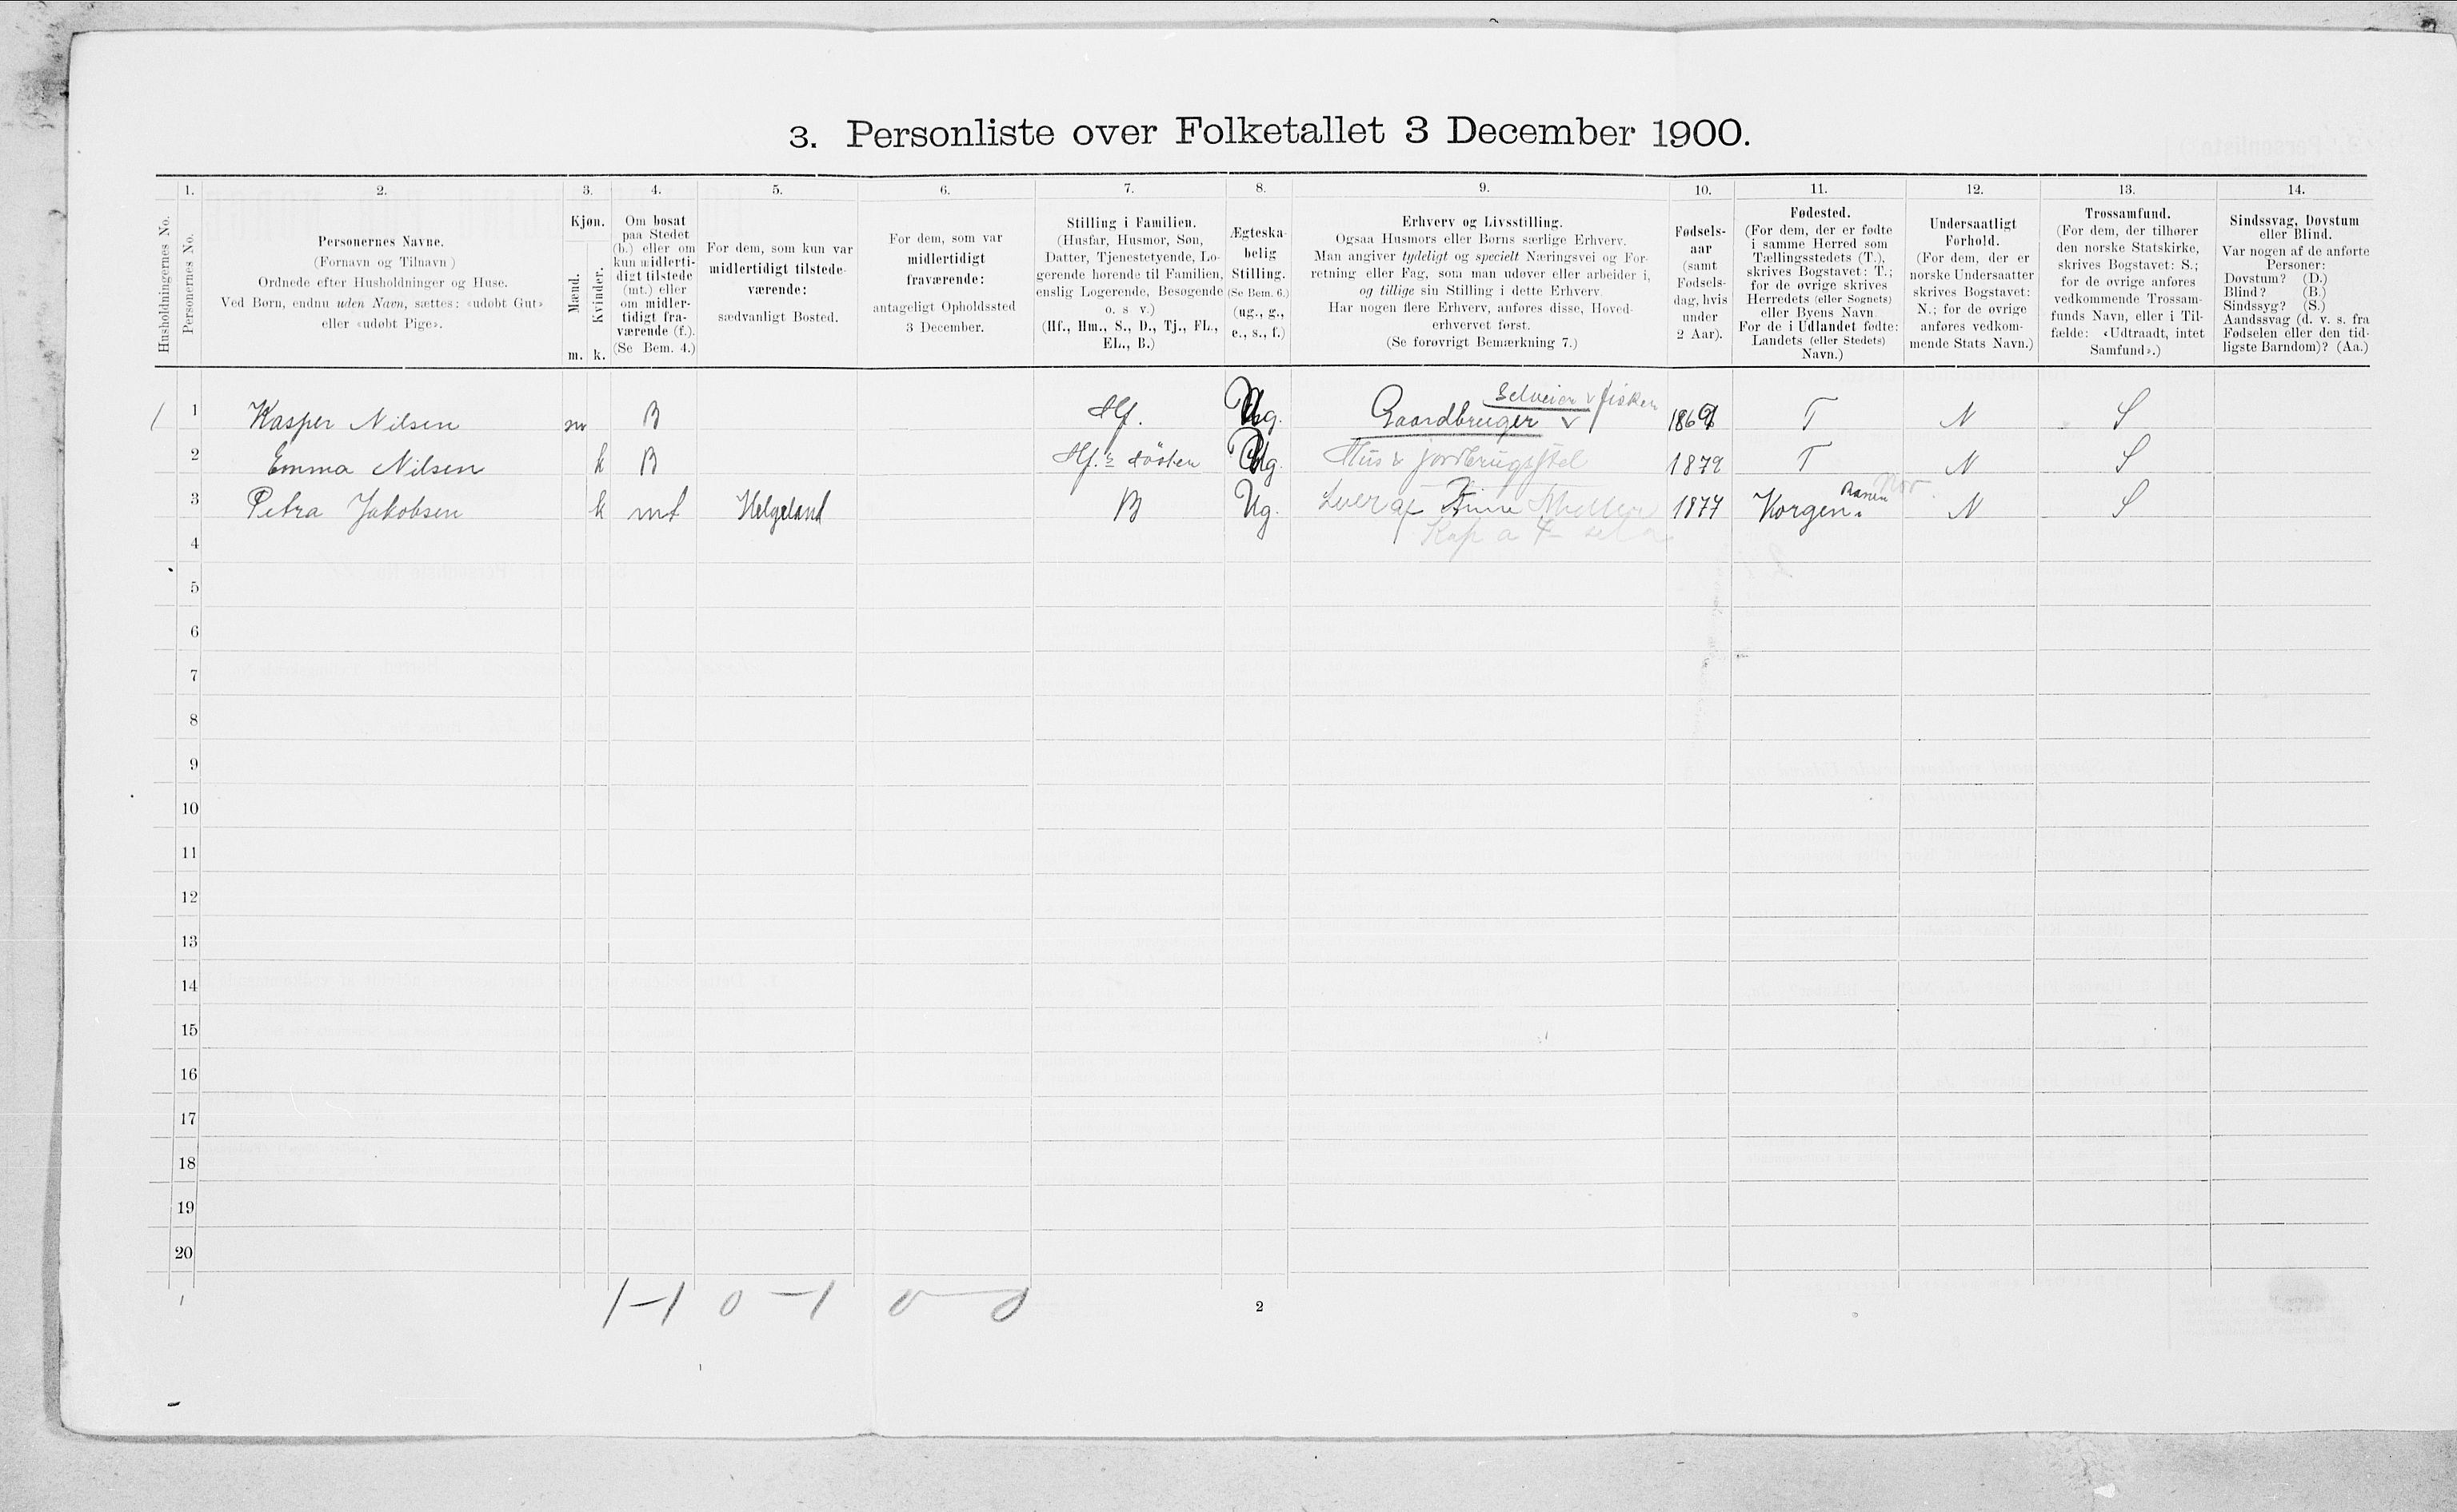 3. Personliste over Folketallet 3 December 1900.
1. 2. 3. 4. 5. 6. 7. 8. 9. 10. 11. 12. 13. 14.
Husholdningernes No.
Personernes No.
Personernes Navne.
(Fornavn og Tilnavn)
Ordnede efter Husholdninger og Huse.
Ved Børn, endnu uden Navn, sættes: «udøbt Gut»
eller «udøbt Pige».
Kjøn.
Mænd.
Kvinder.
m. k.
Om bosat
paa Stedet
(b.) eller om
kun midlerti-
digt tilstede
(mt.) eller
om midler-
tidigt fra-
værende (f.).
(Se Bem. 4.)
For dem, som kun var
midlertidigt tilstede-
værende:
sædvanligt Bosted.
For dem, som var
midlertidigt
fraværende:
antageligt Opholdssted
3 December.
Stilling i Familien.
(Husfar, Husmor, Søn,
Datter, Tjenestetyende, Lo-
gerende hørende til Familien,
enslig Logerende, Besøgende
o. s. v.)
(Hf., Hm., S., D., Tj., FL.,
EL., B.)
Ægteska-
belig
Stilling.
(Se Bem. 6.)
(ug., g.,
e., s., f.)
Erhverv og Livsstilling.
Ogsaa Husmors eller Børns særlige Erhverv.
Man angiver tydeligt og specielt Næringsvei og For-
retning eller Fag, som man udøver eller arbeider i,
og tillige sin Stilling i dette Erhverv.
Har nogen flere Erhverv, anføres disse, Hoved-
erhvervet først.
(Se forøvrigt Bemærkning 7.)
Fødsels-
aar
(samt
Fødsels-
dag, hvis
under
2 Aar).
Fødested.
(For dem, der er fødte
i samme Herred som
Tællingsstedets (T.),
skrives Bogstavet: T.;
for de øvrige skrives
Herredets (eller Sognets)
eller Byens Navn.
For de i Udlandet fødte:
Landets (eller Stedets)
Navn.)
Undersaatligt
Forhold.
(For dem, der er
norske Undersaatter
skrives Bogstavet:
N.; for de øvrige
anføres vedkom-
mende Stats Navn.)
Trossamfund.
(For dem, der tilhører
den norske Statskirke,
skrives Bogstavet: S.;
for de øvrige anføres
vedkommende Trossam-
funds Navn, eller i Til-
fælde: «Udtraadt, intet
Samfund».)
Sindssvag, Døvstum
eller Blind.
Var nogen af de anførte
Personer:
Døvstum? (D.)
Blind? (B.)
Sindssyg? (S.)
Aandssvag (d. v. s. fra
Fødselen eller den tid-
ligste Barndom)? (Aa.)
Selveier v fisker
1 1 Kasper Nilsen m B Hf. Ug. Gaardbruger v T N S
2 Emma Nilsen k B Hf.s söster Ug. Hus & jordbrugsstel 1879 T N S
Ranen
3 Petra Jakobsen k mt Helgeland B Ug. Lever af 1877 Korgen. N S
4
5
6
7
8
9
10
11
12
13
14
15
16
17
18
19
20
1-1 0-1 0-0
2